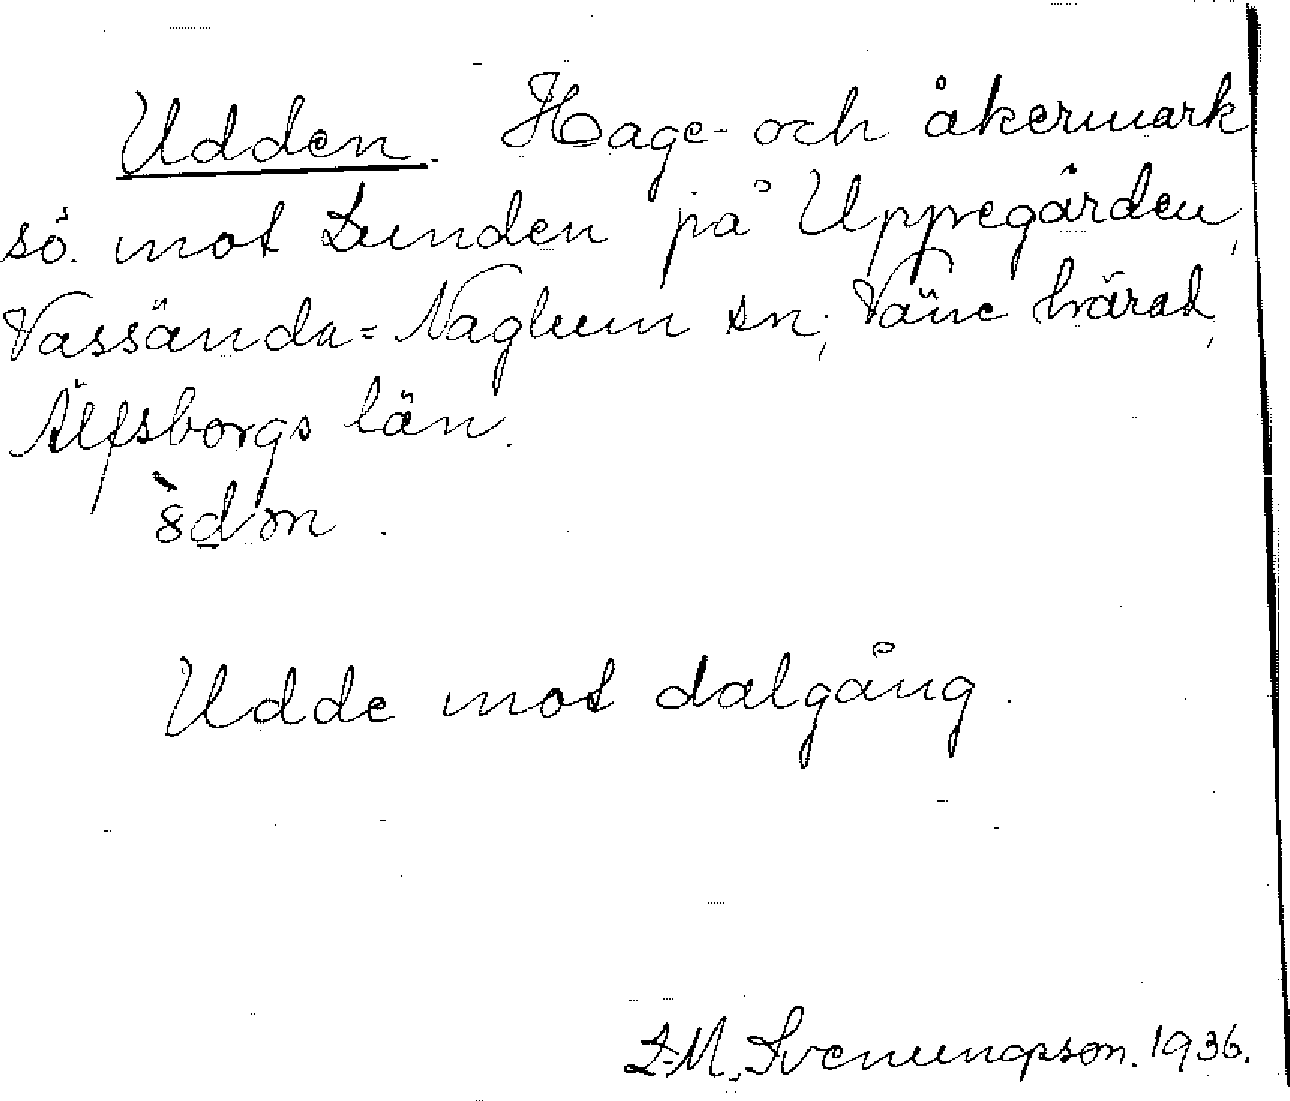 Udden. Hage- och åkermark
sö. mot Lunden på Uppegården,
Vassända=Naglum sn, Väne härad,
Älfsborgs län.
Udde mot dalgång.
L-M. Svenungson. 1936.